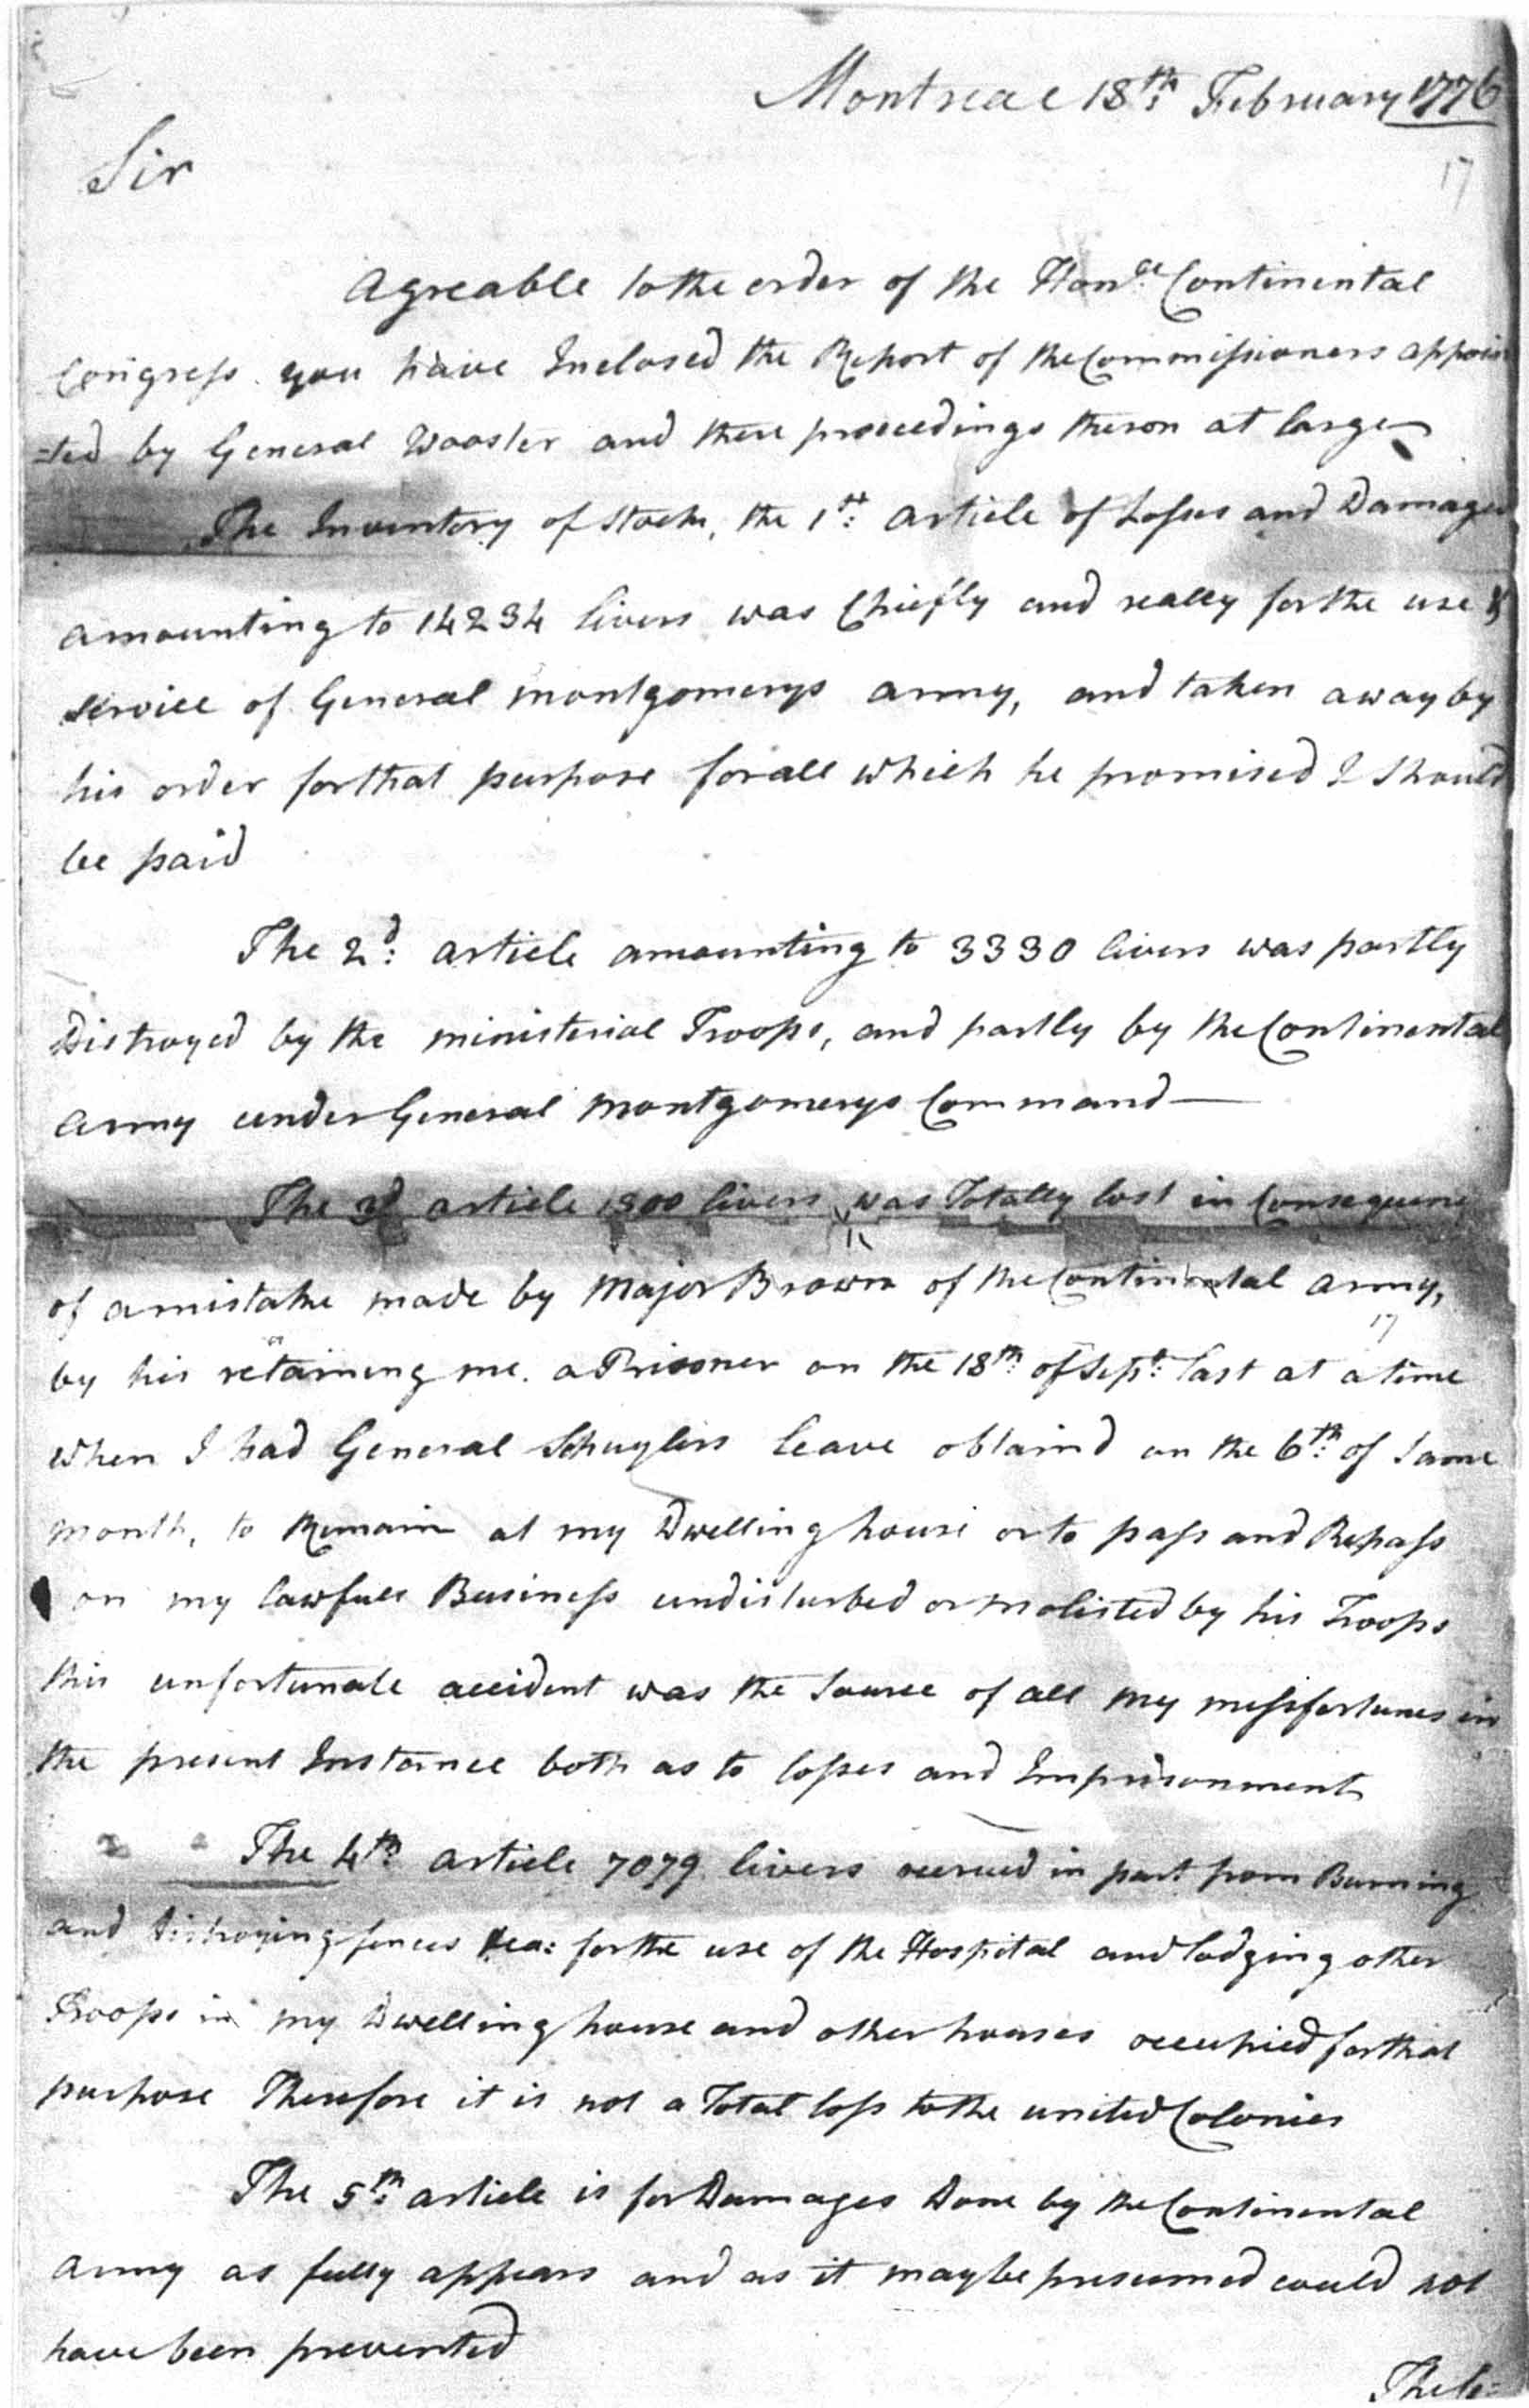 Montreal 18th: February 1776
17
Sir
Agreable to the order of the Honble: Continental
Congress you have Inclosed the Report of the Commissioners appoin
=ted by General Wooster and there proceedings theron at large
The Inventory of Stock, the 1st: article of Losses and Damages
amounting to 14234 livers was Chiefly and really for the use &
service of General montgomerys army, and taken away by
his order for that purpose for all which he promised I should
be paid
The 2d: article amounting to 3330 livers was partly
Distroyed by the ministerial Troops, and partly by the Continental
army under General Montgomerys Command —
The 3d article 1300 livers was Totally lost in Consequence
of a mistake made by Major Brown of the Continental army,
17
by his retaining me a Prisoner on the 18th: of Sept: last at a time
when I had General Schuylers leave obtaind on the 6th: of same
month, to Remain at my Dwelling house or to pass and Repass
on my lawfull Business undisturbed or molisted by his Troops
this unfortunate accident was the Source of all my missfortunes in
the present Instance both as to losses and Imprisonment
The 4th: article 7079 livers accrued in part from Burning
and distroying fences &ca: for the use of the Hospital and lodging other
Troops in my Dwelling house and other houses occupied for that
purpose Therefore it is not a Total loss to the united Colonies
The 5th: article is for Damages Done by the Continental
army as fully appears and as it may be presumed could not
have been prevented